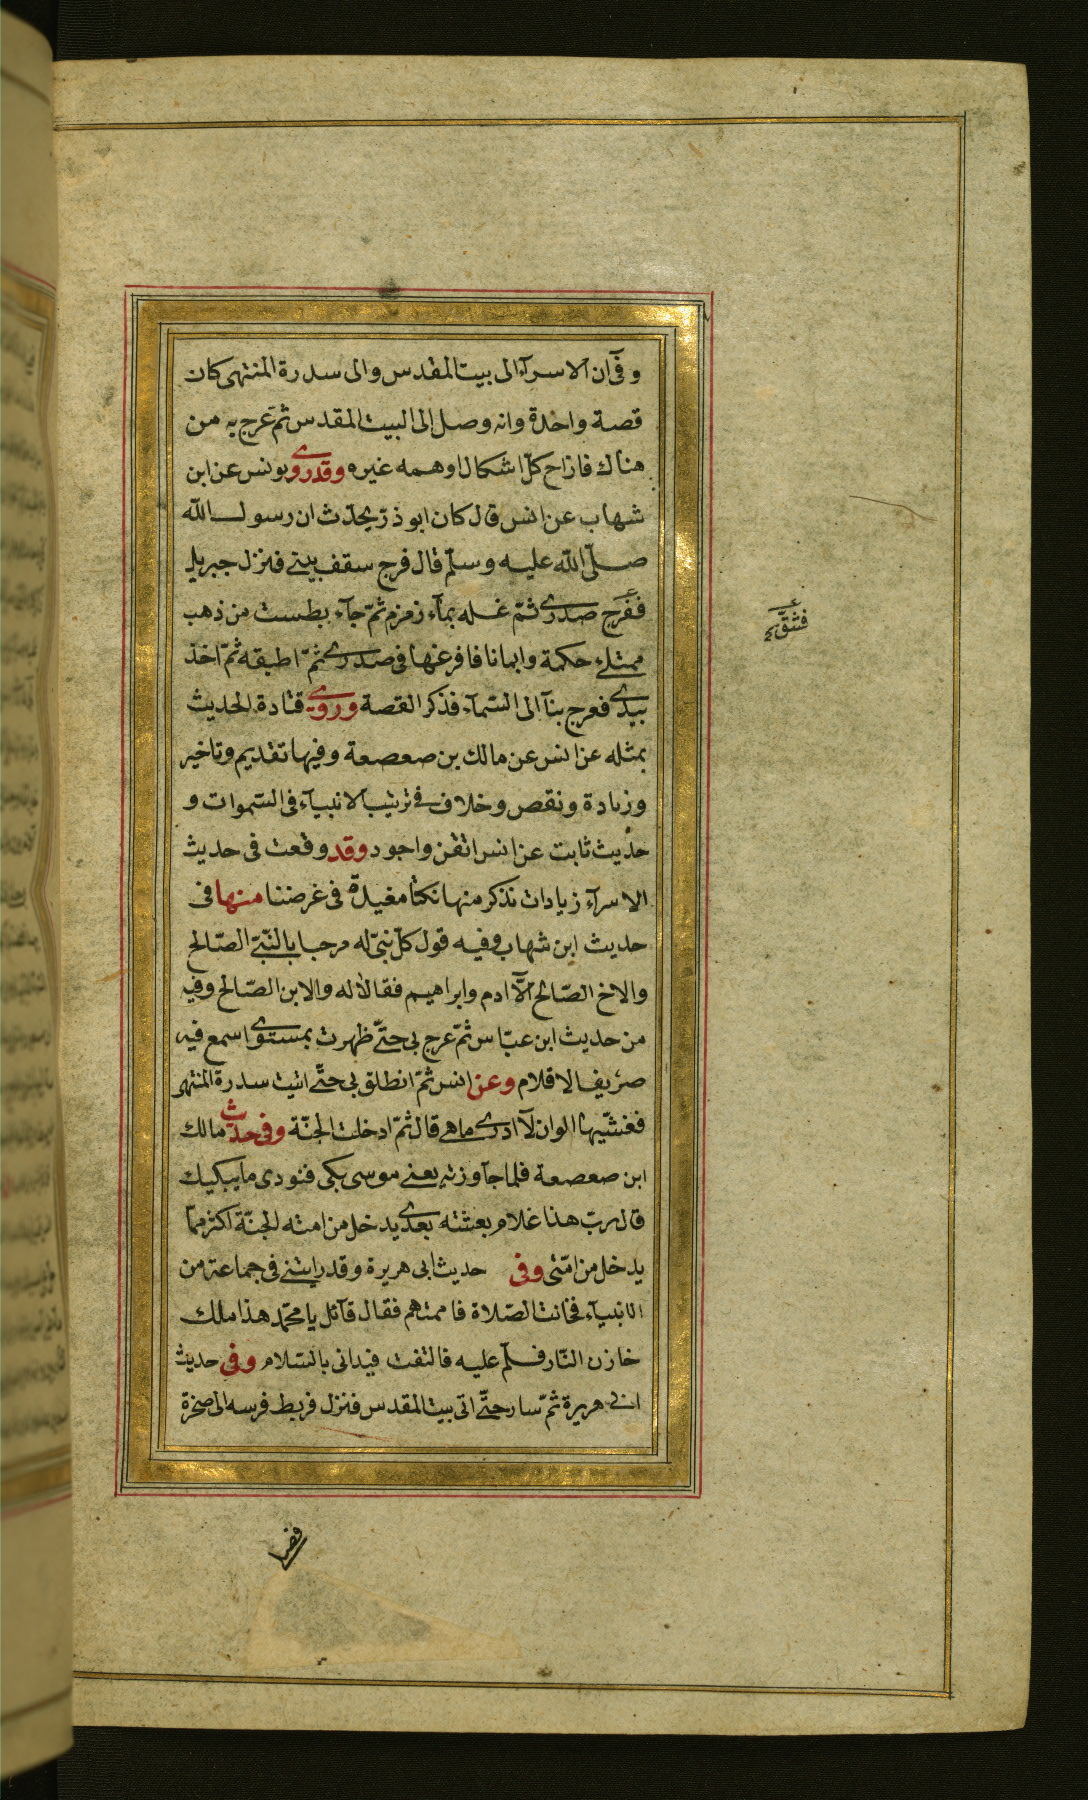 وفى ان الاسرآء الى بيت المقدس والى سدرة المنتهى كان
قصة واحدة وانه وصل الى البيت المقدس ثم عرج به من
هناك فازاح كل اشكال اوهمه غيره وقد روى يونس عن ابن
شهاب عن انس قال كان ابو ذر يحدّث ان رسول اللّه
صلّى اللّه عليه وسلّم قال فرج سقف بيتى فنزل جبريل
ففَرَج صدرى ثمّ غسله بمآء زمزم ثمّ جآء بطست من ذهب
ممتلىء حكمة وايمانا فافرغها فى صدرى ثمّ اطبقه ثمّ اخذ
بيدى فعرج بنآ الى السّمآء فذكر القصة وروى قتادة الحديث
بمثله عن انس عن مالك بن صعصعة وفيها تقديم وتاخير
وزيادة ونقص وخلاف فى ترتيب الانبيآء فى السّموات و
حديث ثابت عن انس اتقن واجود وقد وقعت فى حديث
الاسرآء زيادات نذكر منها نكتا مفيدة فى غرضنا منها فى
حديث ابن شهاب وفيه قول كلّ نبىّ له مرحبا بالنّبىّ الصّالح
والاخ الصّالح الّآ ادم وابراهيم فقالا له والابن الصّالح وفيه
من حديث ابن عبّاس ثمّ عرج بى حتّى ظهرت بمستوى اسمع فيه
صريف الاقلام وعن انس ثمّ انطلق بى حتّى اتيت سدرة المنتهى
فغشيها الوان لآ ادرى ما هى قال ثمّ ادخلت الجنّة وفى حديث مالك
ابن صعصعة فلما جاوزته يعنى موسى بكى فنودى ما يبكيك
قال رب هذا غلام بعثته بعدى يدخل من امته الجنّة اكثر ممّا
يدخل من امّتى وفى حديث ابى هريرة وقد رايتنى فى جماعة من
الانبيآء فحانت الصّلاة فاممتهم فقال قآئل يا محمّد هذا مالك
خازن النّار فسلّم عليه فالتفت فبدانى بالسّلام وفى حديث
ابى هريرة ثمّ سار حتّى اتى بيت المقدس فنزل فربط فرسه الى صخرة
فشقّ
فصلى